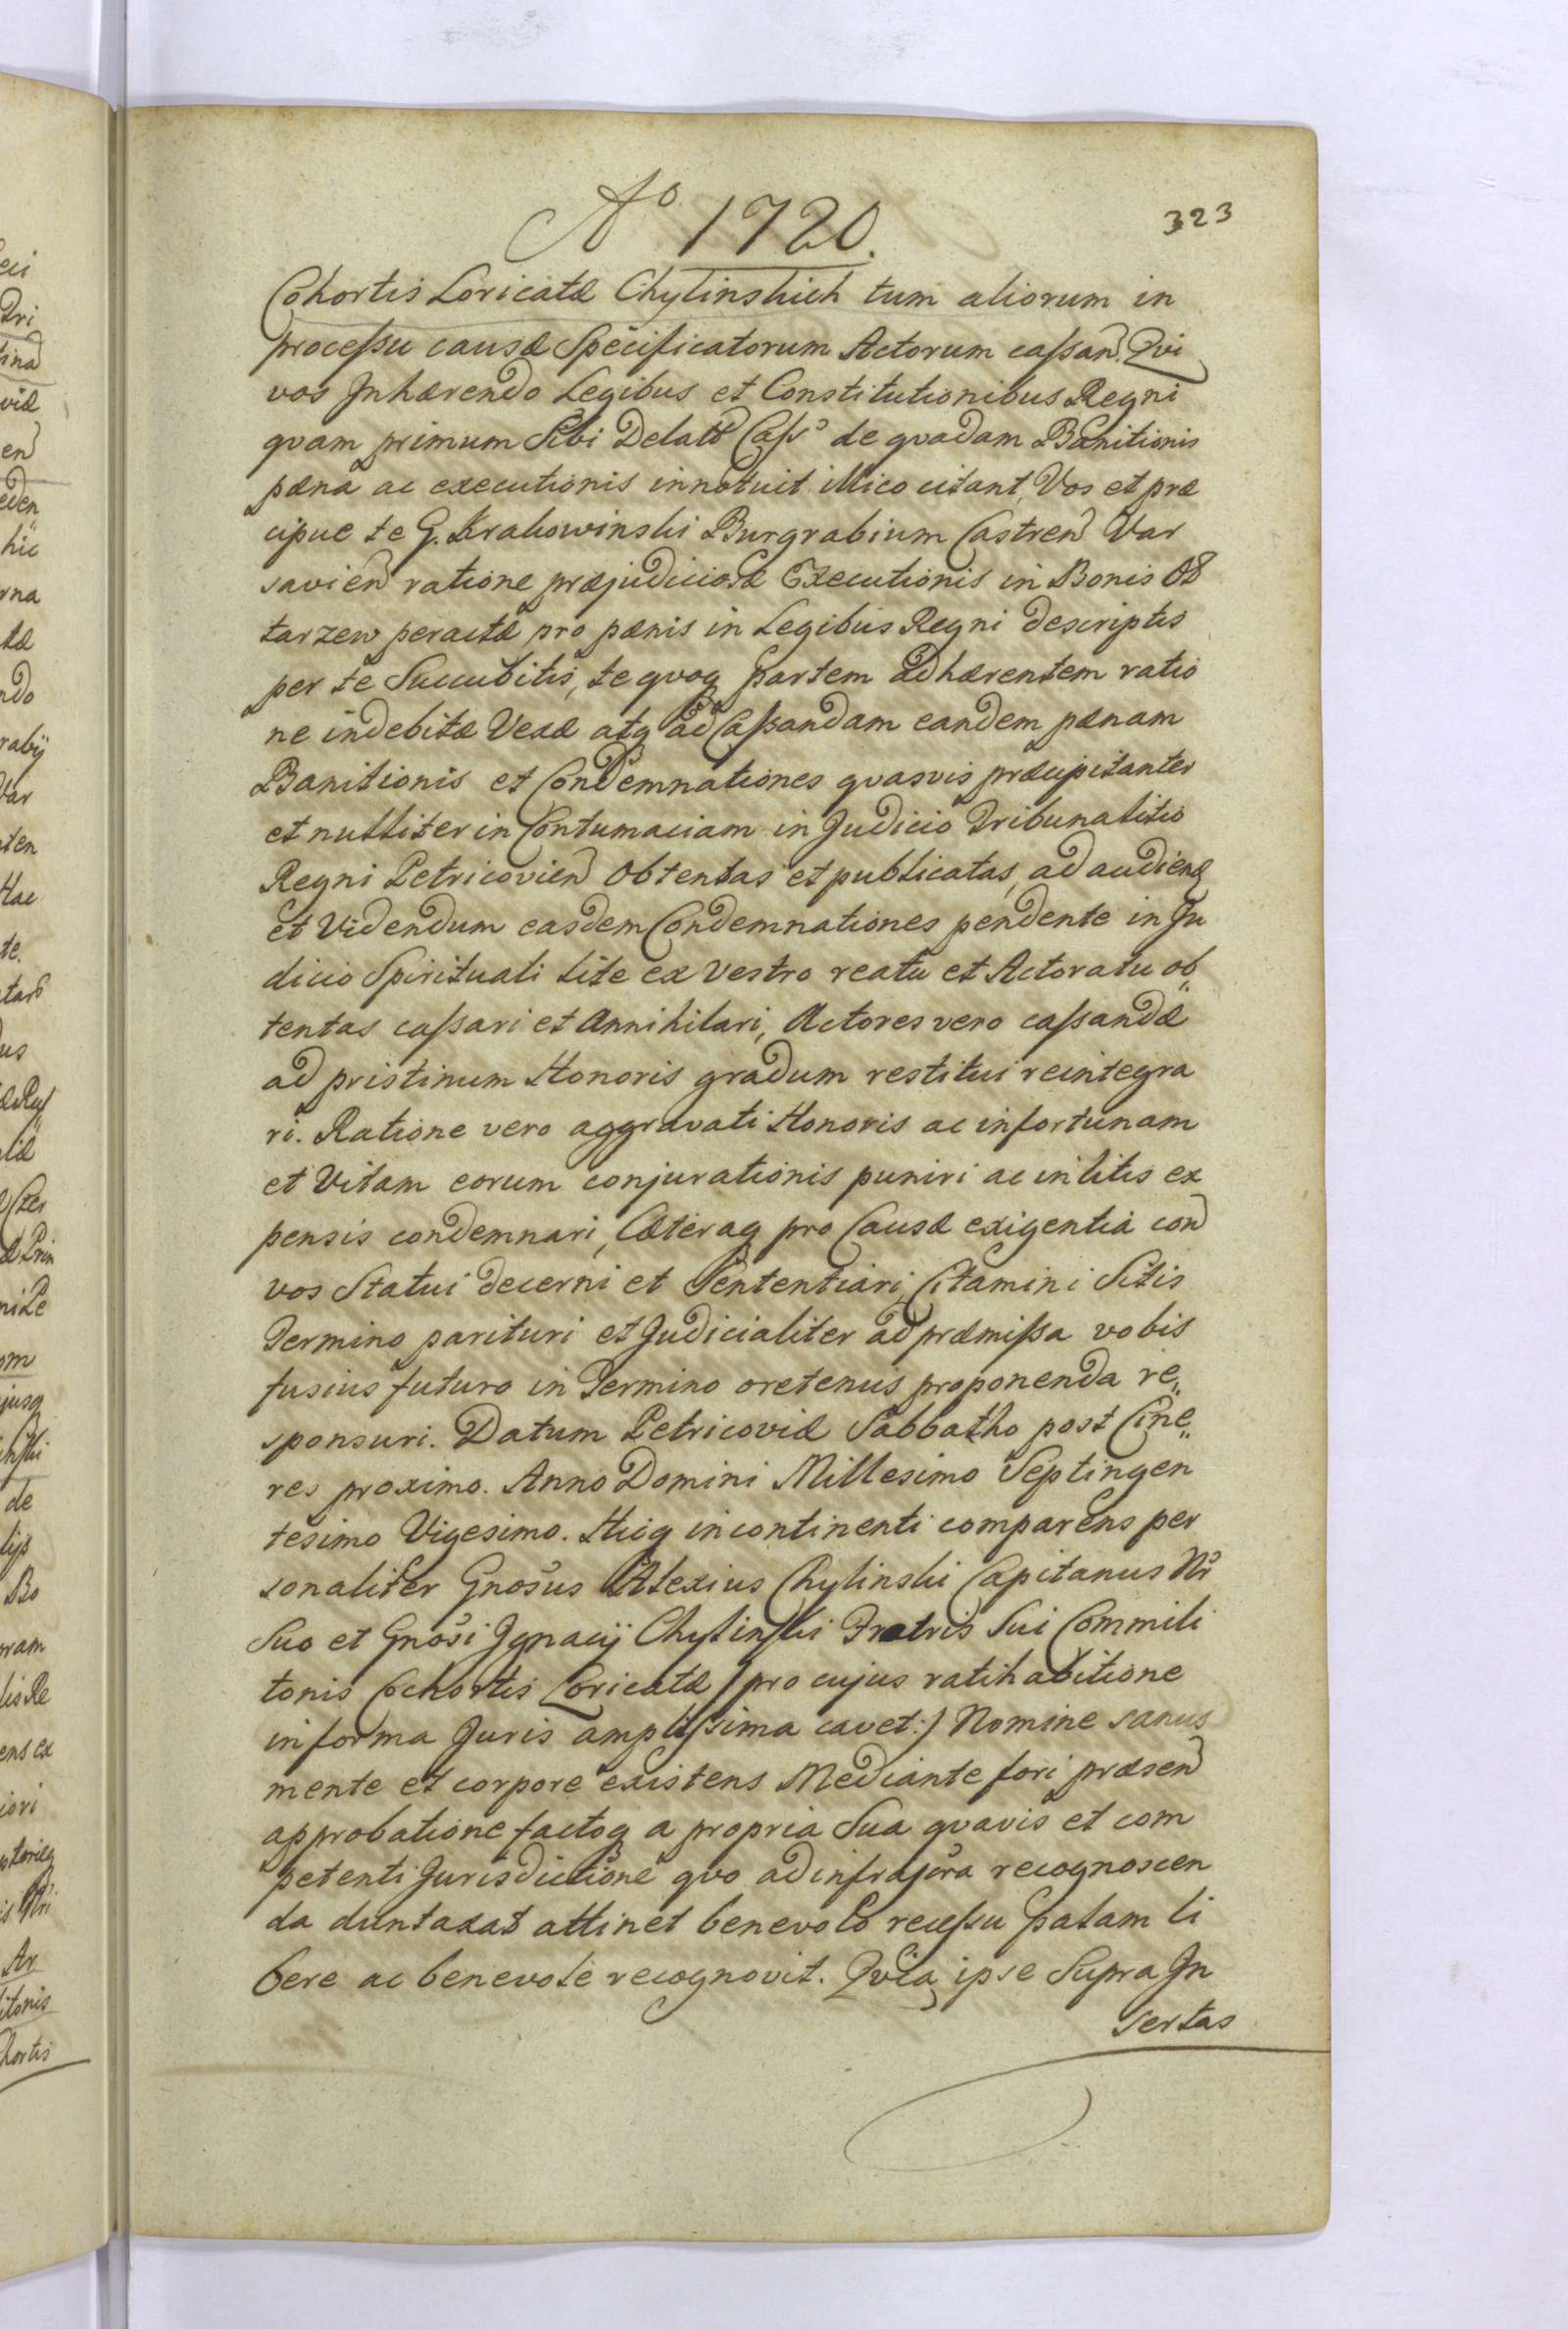 Aº 1720.
323
Cohortis Loricatæ Chylinskich tum aliorum in
processu causæ Specificatorum Actorum cassan̄. Qvi
vos Inhærendo Legibus et Constitutionibus Regni
qvam primum Sibi Delato Cass° de qvadam Banitionis
pæna ac executionis innotuit illico citant, Vos et præ
cipue te G. Krakowinski Burgrabium Castren̄ Var
savien̄ ratione præjudiciosæ Executionis in Bonis Oł
tarzew peractæ, pro pænis in Legibus Regni descriptis
per te Succubitis, te qvoq partem adhærentem ratio
ne indebitæ Vexæ atq ad Cassandam eandem pænam
Banitionis et Condemnationes qvasvis præcipitanter
et nulliter in Contumaciam in Judicio Tribunalitio
Regni Petricovien̄ obtentas et publicatas, ad audiend
et Videndum easdem Condemnationes pendente in Ju
dicio Spirituali lite ex vestro reatu et Actoratu ob„
tentas cassari et Annihilari, Actores vero cassandæ
ad pristinum Honoris gradum restitui reintegra
ri. Ratione vero aggravati Honoris ac in fortunam
et Vitam eorum conjurationis puniri ac in litis ex
pensis condemnari, Cæteraq pro Causæ exigentia con̄
vos Statui decerni et Sententiari, Citamini Sitis
Termino parituri et Judicialiter ad præmissa vobis
fusius futuro in Termino oretenus proponenda re„
sponsuri. Datum Petricoviæ Sabbatho post Cine„
res proximo. Anno Domini Millesimo Septingen
tesimo Vigesimo. Hicq incontinenti comparens per
sonaliter Gnosus Alexius Chylinski Capitanus Nr̄
Suo et Gnosi Ignacij Chylinski Fratris Sui Commili
tonis Cohortis Loricatæ) pro cujus ratihabitione
in forma Juris amplissima cavet:) Nomine sanus
mente et corpore existens Mediante fori præsen̄
approbatione factoq a propria Sua qvavis et com
petenti Jurisdictione qvo ad infrascra recognoscen
da duntaxat attinet benevolo recessu palam li
bere ac benevole recognovit. Qvia ipse Supra In
sertas